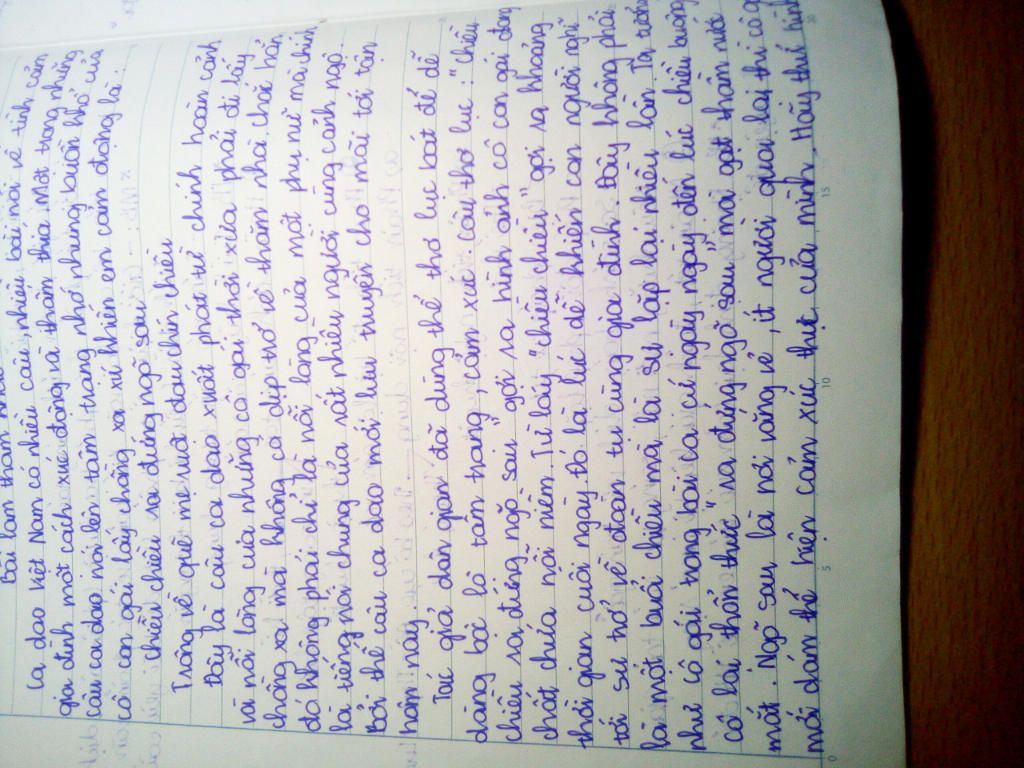 Bài làm tham khảo
Ca dao Việt Nam có nhiều câu, nhiều bài nói về tình cảm
gia đình một cách xúc động và thấm thía. Một trong những
câu ca dao nói lên tâm trạng nhớ nhung buồn khổ của
cô con gái lấy chồng xa xứ khiến em cảm động là:
chiều chiều ra đứng ngõ sau
Trông về quê mẹ ruột đau chín chiều
Đây là câu ca dao xuất phát từ chính hoàn cảnh
và nỗi lòng của những cô gái thời xưa phải đi lấy
chồng xa mà không có dịp trở về thăm nhà. chắc hẳn
đó không phải chỉ là nỗi lòng của một phụ nữ mà chính
là tiếng nói chung của rất nhiều người cùng cảnh ngộ.
Bởi thế câu ca dao mới lưu truyền cho mãi tới tận
hôm nay.
Tác giả dân gian đã dùng thể thơ lục bát để dễ
dàng bộc lộ tâm trạng, cảm xúc. câu thơ lục: "chiều
chiều ra đứng ngõ sau" gợi ra hình ảnh cô con gái đang
chất chứa nỗi niềm. Từ láy "chiều chiều" gợi ra khoảng
thời gian cuối ngày. Đó là lúc dễ khiến con người nghĩ
tới sự trở về đoàn tụ cùng gia đình. Đây không phải
là một buổi chiều mà là sự lặp lại nhiều lần. Ta tưởng
như cô gái trong bài ca cái ngày ngày đến lúc chiều buông
cô lại thổn thức" ra đứng ngõ sau" mà gạt thầm nước
mắt. Ngõ sau là nơi vắng vẻ, ít người qua lại thì cô gái
mới dám thể hiện cảm xúc thực của mình. Hãy thử hình